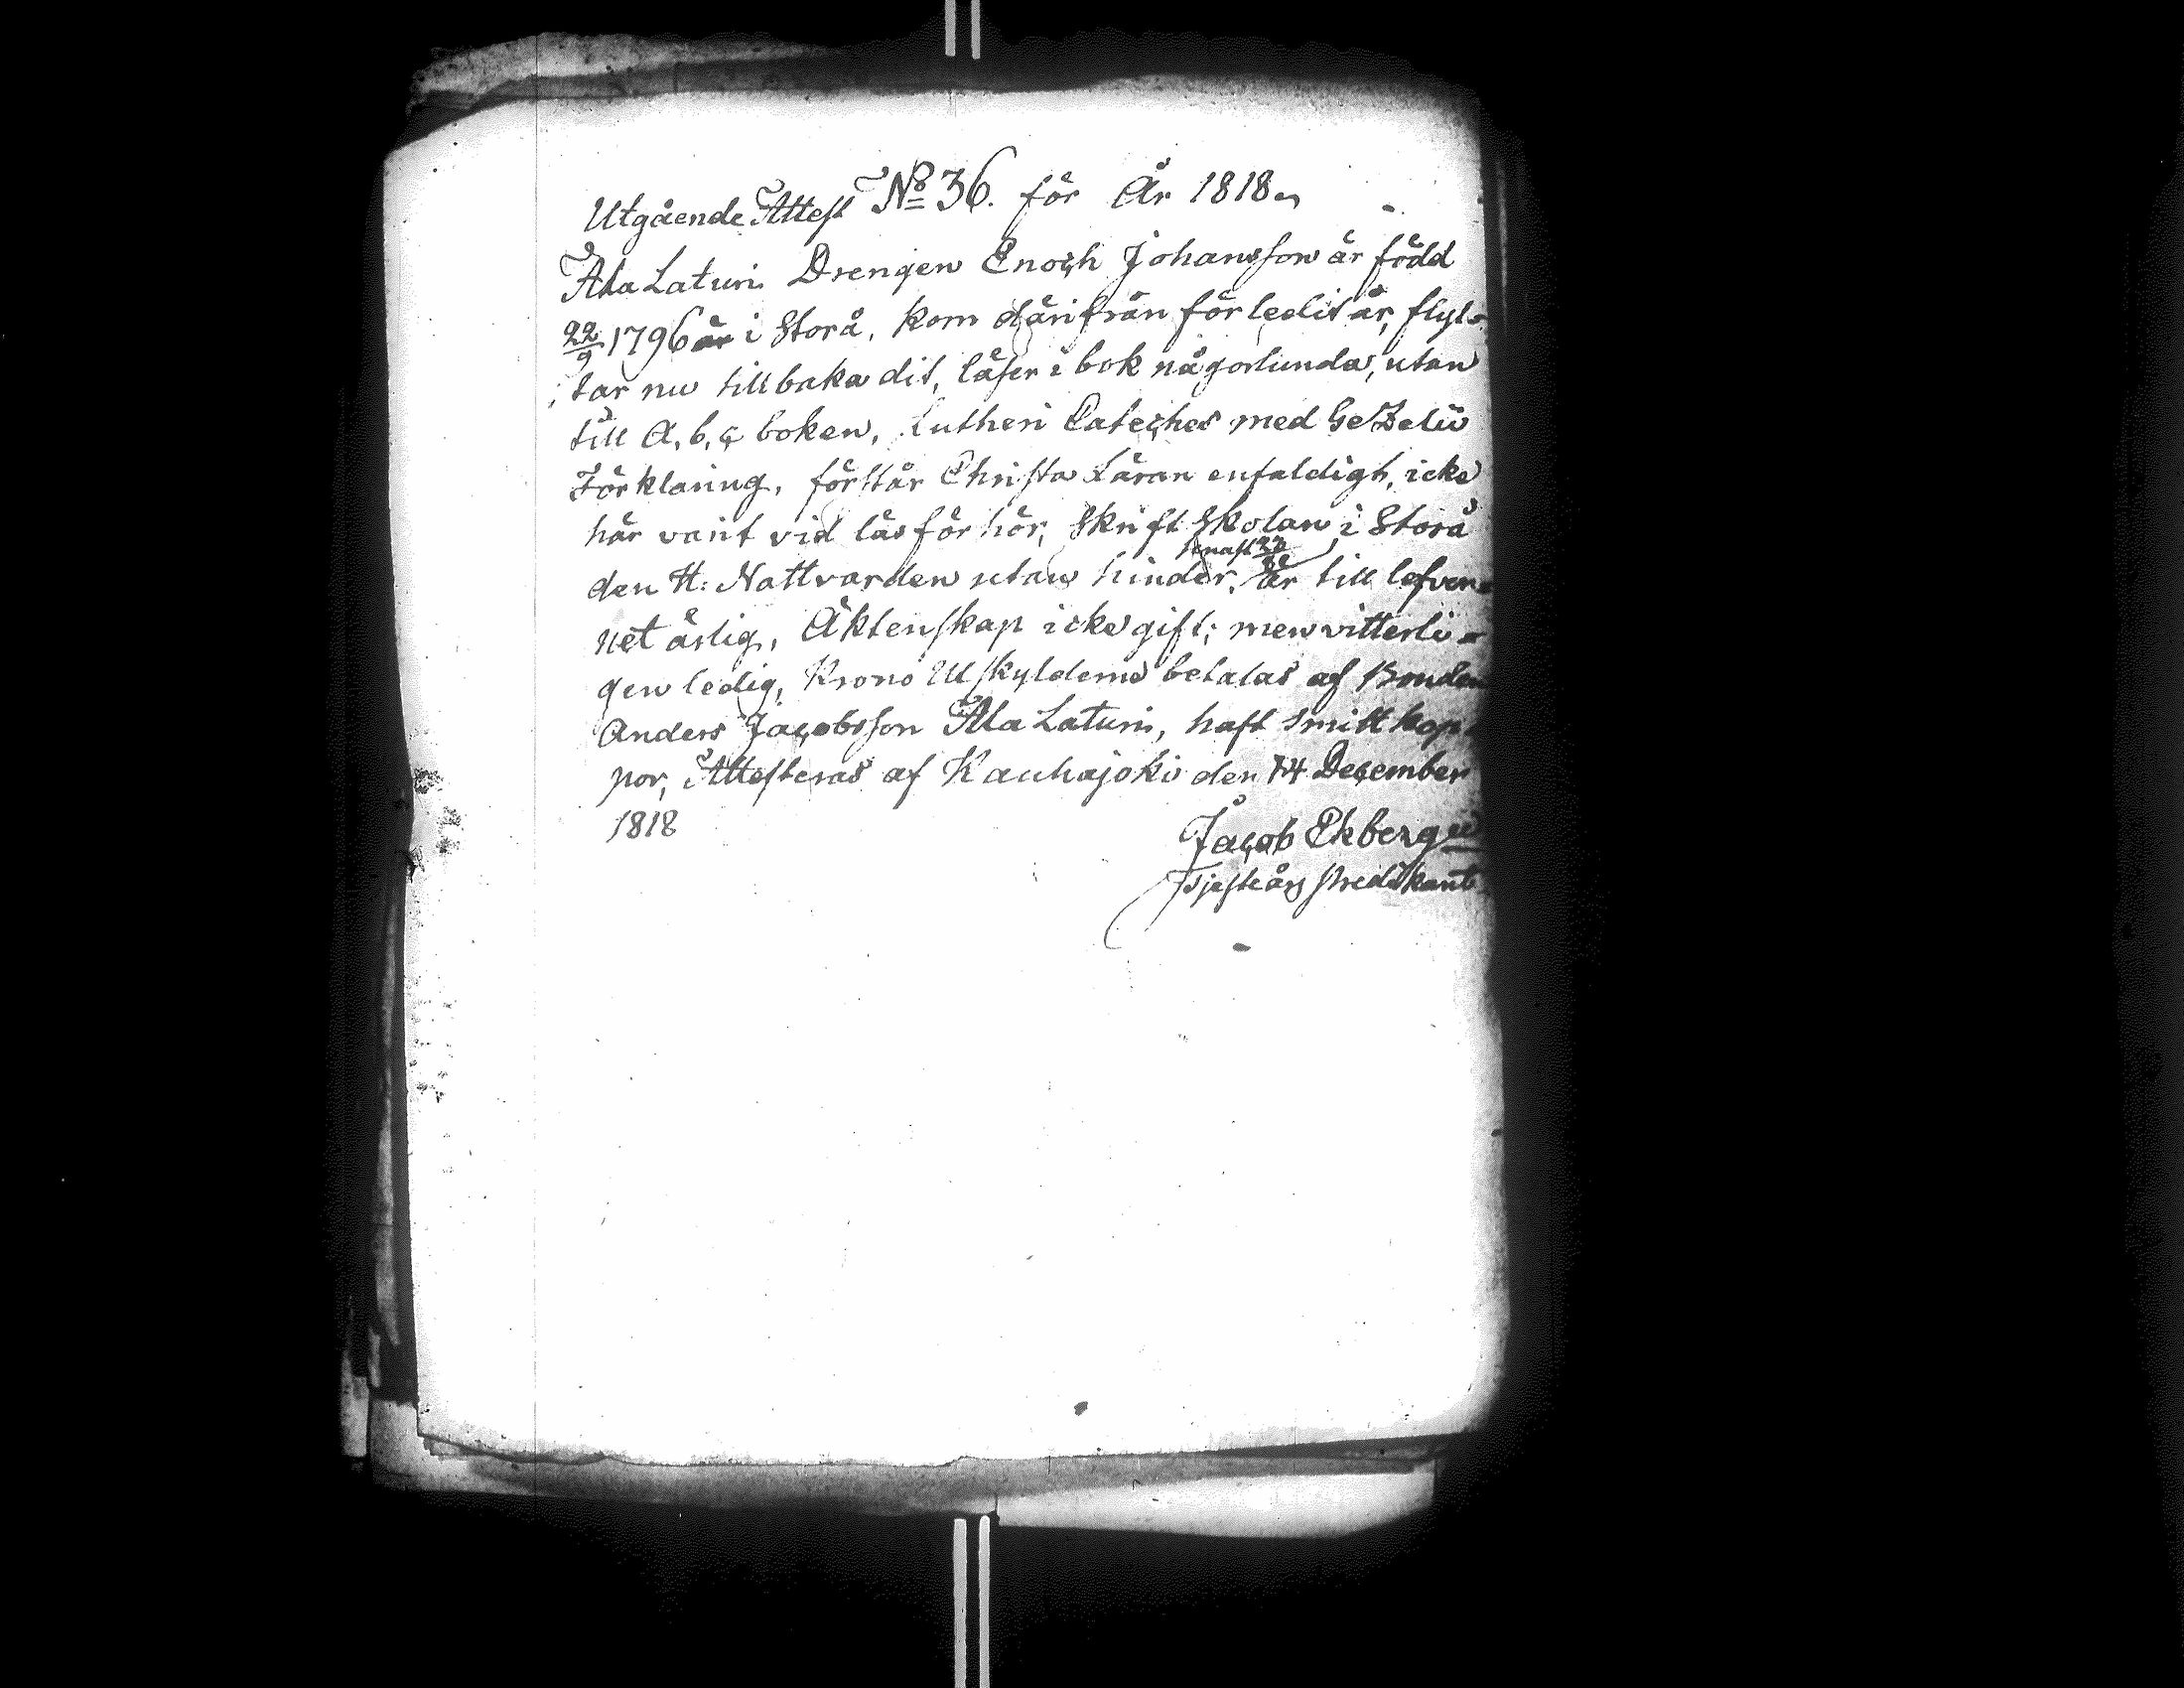 Utgående Attest No 36. för År 1818
Ala Laturi Drengen Enoch Johansson är född
22/9 1796 i Storå, kom därifrån förledit år, flyt-
tar nu tillbaka dit, läser i bok någorlunda, utan
till A, b, c boken, Lutheri Cateches med Gezelii
Förklaring, förstår Christa Läran enfaldigt, icke
här varit vid läs för hör, Skrift Skolan i Storå
senast
den H: Nattvarden utan hinder, är till lefver-
net ärlig, Äktenskap icke gift; men vitterli-
gen ledig, Krono Utskylderna betalas af Bonden
Anders Jacobsson Ala Laturi, haft smitt kop-
por, Attesteras af Kauhajoki den 14 December
1818
Jacob Ekberg
predikant